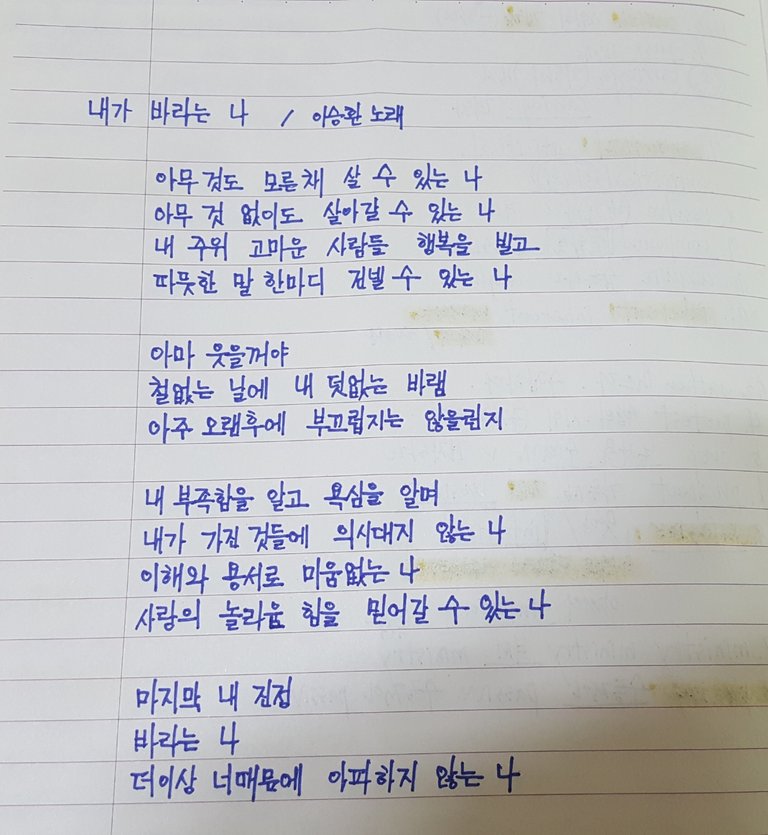 내가 바라는 나 / 이승환 노래
아무것도 모른채 살 수 있는 나
아무 것 없이도 살아갈 수 있는 나
내 주위 고마운 사람들 행복을 빌고
따뜻한 말 한마디 건넬 수 있는 나
아마 웃을꺼야
철없는 날에 내 덧없는 바램
아주 오랜후에 부끄럽지는 않을런지
내 부족함을 알고 욕심을 알며
내가 가진 것들에 의시대지 않는 나
이해와 용서로 미움없는 나
사랑의 놀라운 힘을 믿어갈 수 있는 나
마지막 내 진정
바라는 나
더이상 너때문에 아파하지 않는 나